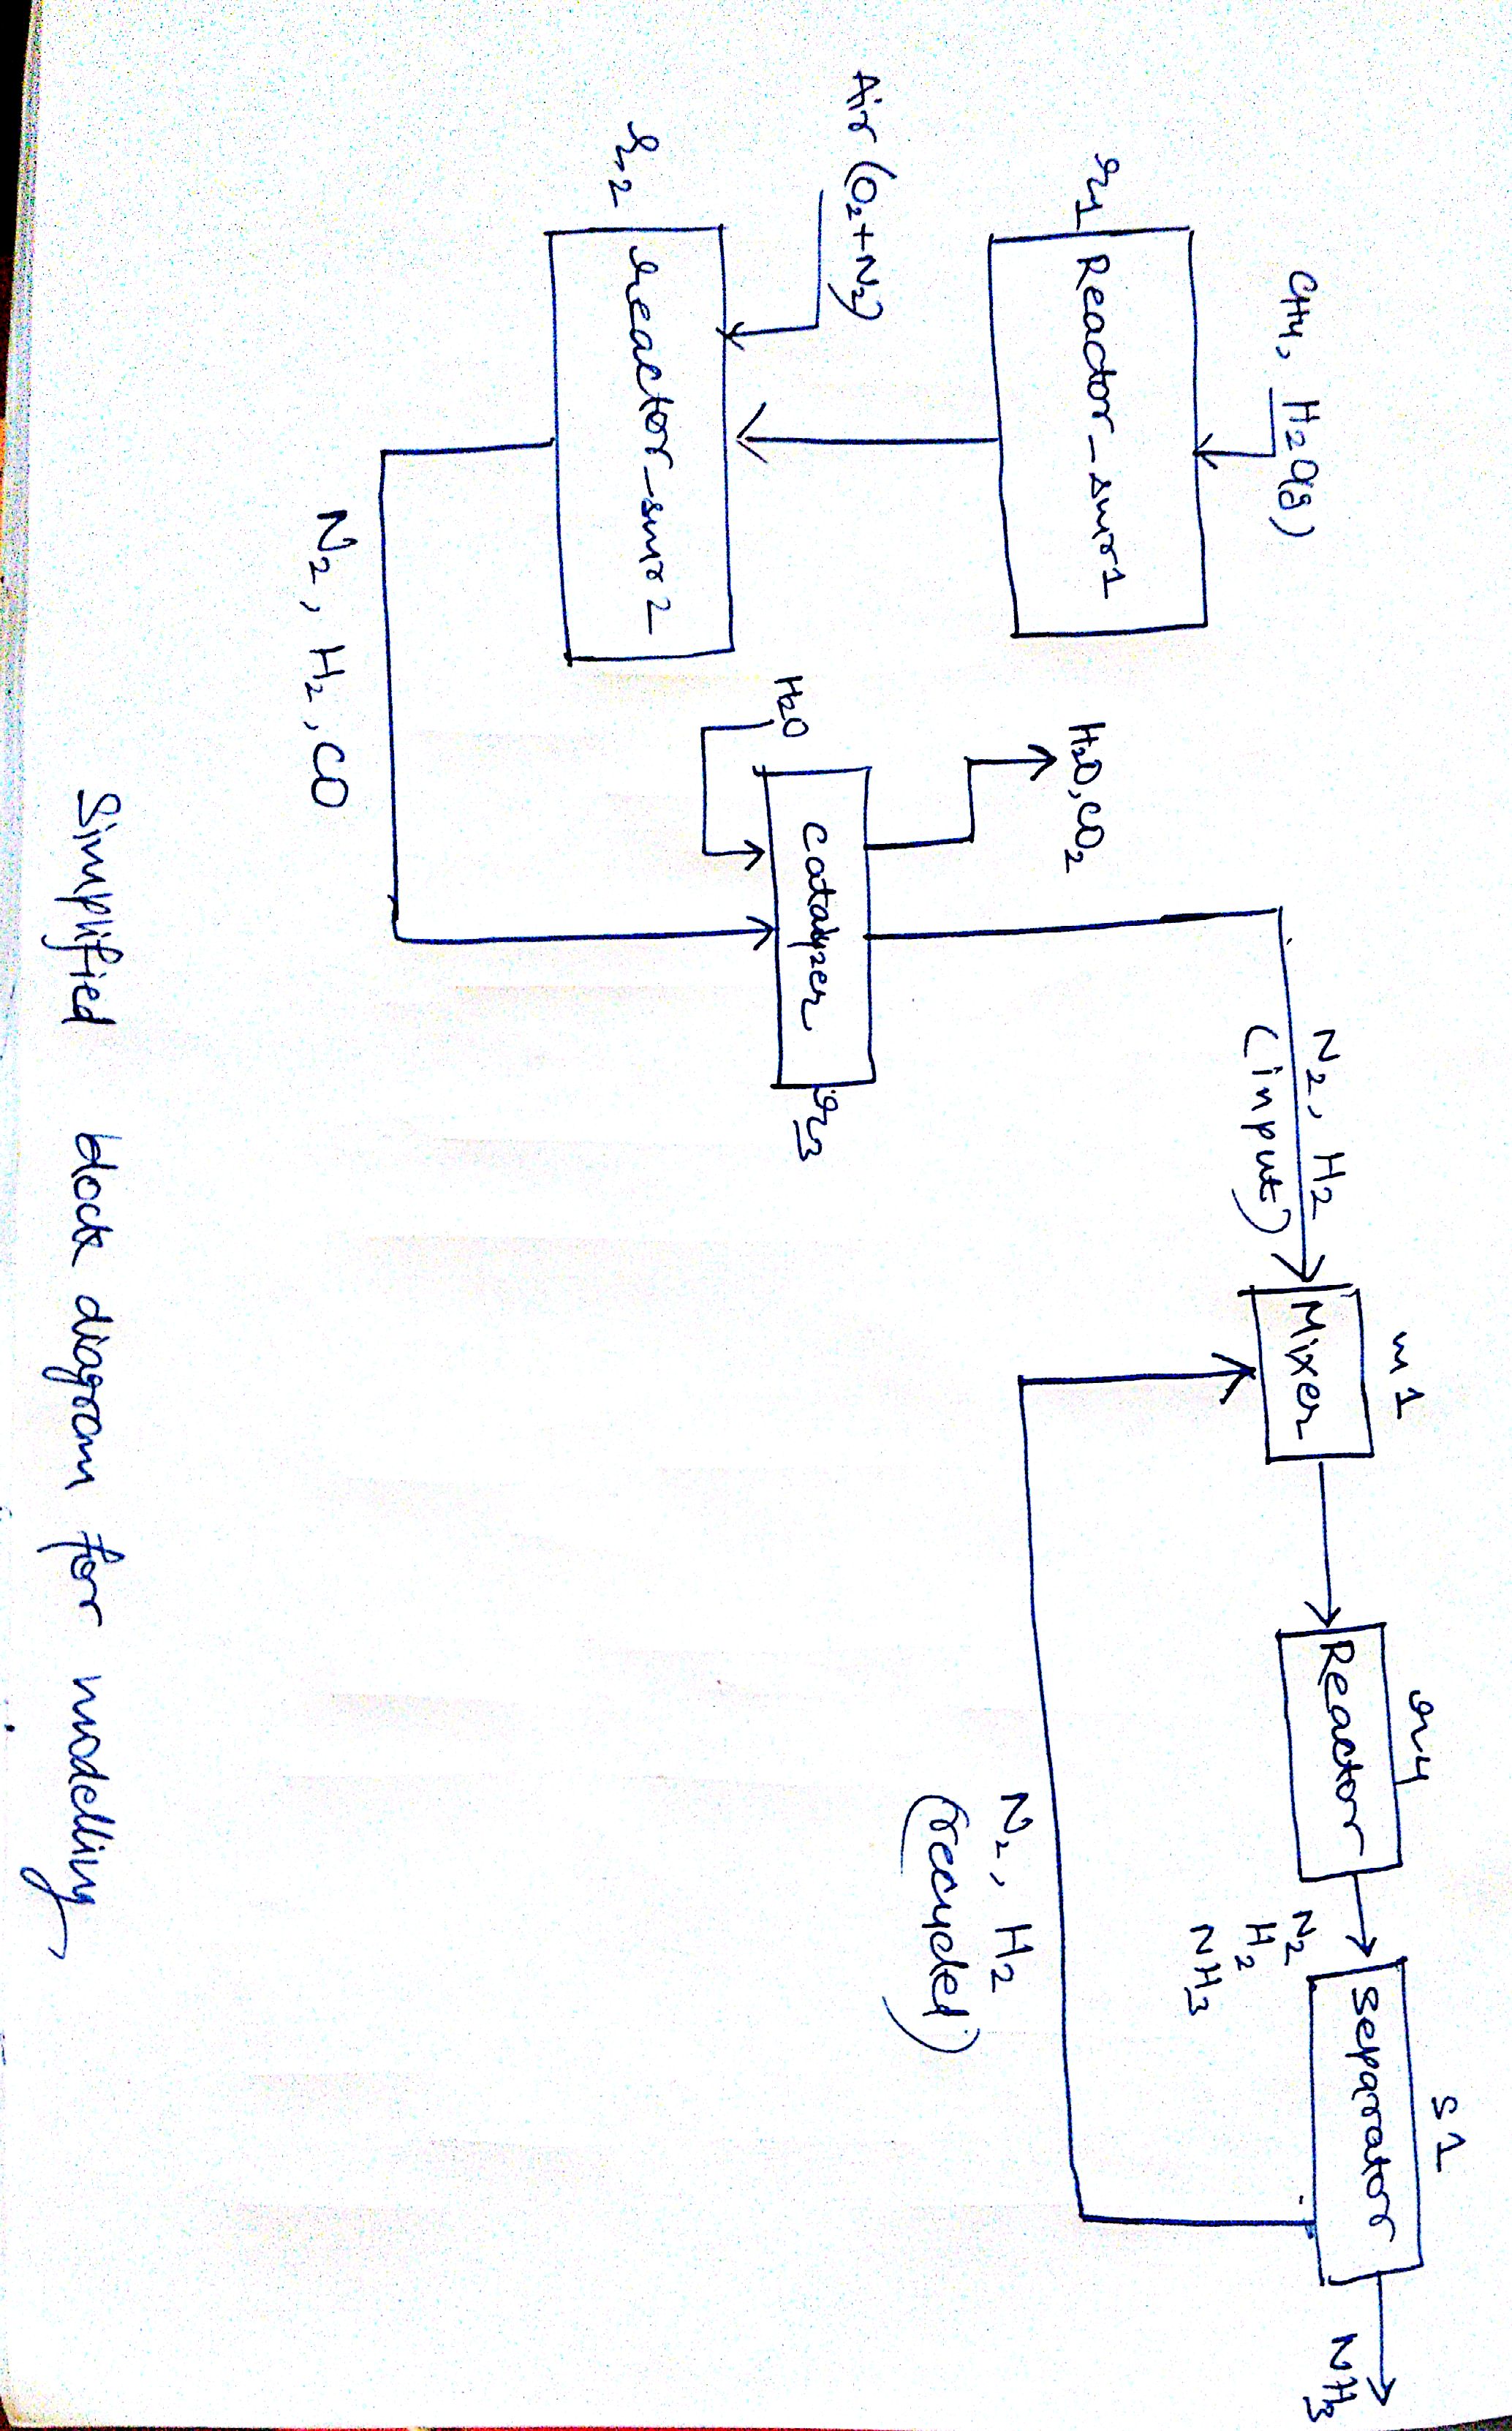 CH4, H2O(g)
r1
Reactor_smr1
Air (O2+N2)
r2
reactor_smr2
N2, H2, CO
H2O
H2O, CO2
Catalyzer
r3
N2, H2
(input)
m1
Mixer
r4
Reactor
N2
H2
NH3
s1
Separator
NH3
N2, H2
(recycle)
Simplified block diagram for modelling